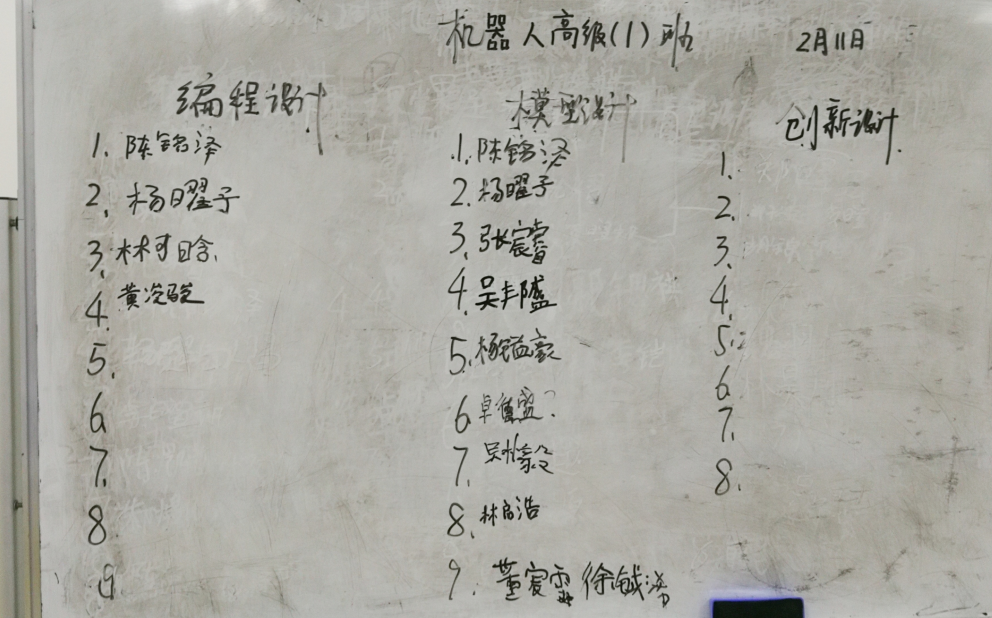 机器人高级(1)班
2月11日
编程设计
1. 陈铭泽
2. 杨曜子
3. 林可晗
4. 黄浚骏
5.
6
7.
8
9
模型设计
1. 陈铭泽
2. 杨曜子
3. 张宸睿
4. 吴丰盛
5. 杨镒豪
6
7.
8. 林启浩
9.
创新设计
1.
2.
3.
4.
5.
6
7.
8.